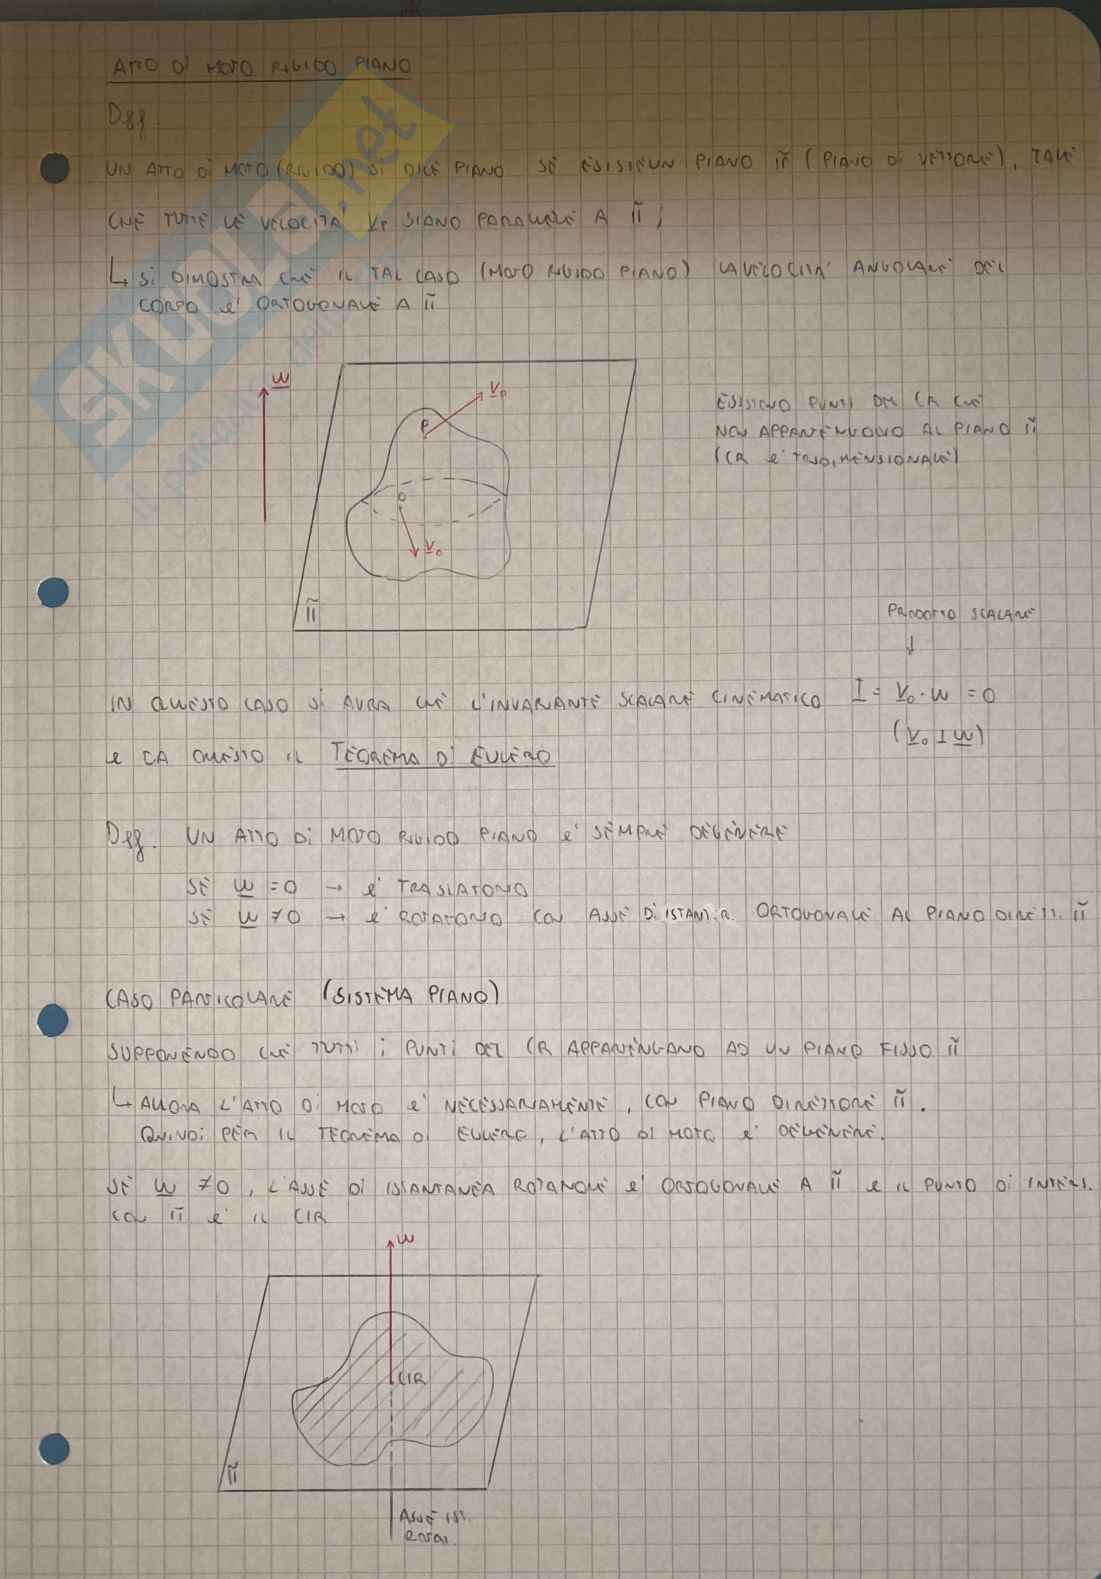 ATTO DI MOTO RIGIDO PIANO
Def.
UN ATTO DI MOTO (RIGIDO) SI DICE PIANO SE ESISTE UN PIANO π̃ (PIANO DI VETTORE), TALE
CHE TUTTE LE VELOCITA' VP SIANO PARALLELE A π̃;
↳ SI DIMOSTRA CHE IL TAL CASO (MOTO RIGIDO PIANO) LA VELOCITA' ANGOLARE DEL
CORPO e' ORTOGONALE A π̃
w
V0
P
O
V0
π̃
ESISTONO PUNTI DEL CR CHE
NON APPARTENGONO AL PIANO π̃
(CR e' TRIDIMENSIONALE)
PRODOTTO SCALARE
↓
IN QUESTO CASO SI AVRA CHE L'INVARIANTE SCALARE CINEMATICO I = V0 · w = 0
(V0 ⊥ w)
e DA QUESTO IL TEOREMA DI EULERO
Def. UN ATTO DI MOTO RIGIDO PIANO e' SEMPRE DEGENERE
SE w = 0 → e' TRASLATORIO
SE w ≠ 0 → e' ROTATORIO CON ASSE DI ISTAN. R. ORTOGONALE AL PIANO DIRETT. π̃
CASO PARTICOLARE (SISTEMA PIANO)
SUPPONENDO CHE TUTTI I PUNTI DEL CR APPARTENGANO AD UN PIANO FISSO π̃
↳ ALLORA L'ATTO DI MOTO e' NECESSARIAMENTE, CON PIANO DIRETTORE π̃.
QUINDI PER IL TEOREMA DI EULERO, L'ATTO DI MOTO e' DEGENERE.
SE w ≠ 0, L'ASSE DI ISTANTANEA ROTAZIONE e' ORTOGONALE A π̃ e IL PUNTO DI INTERS.
CON π̃ e' IL CIR
w
CIR
π̃
ASSE IST.
ROTAZ.
SKUOLA.net